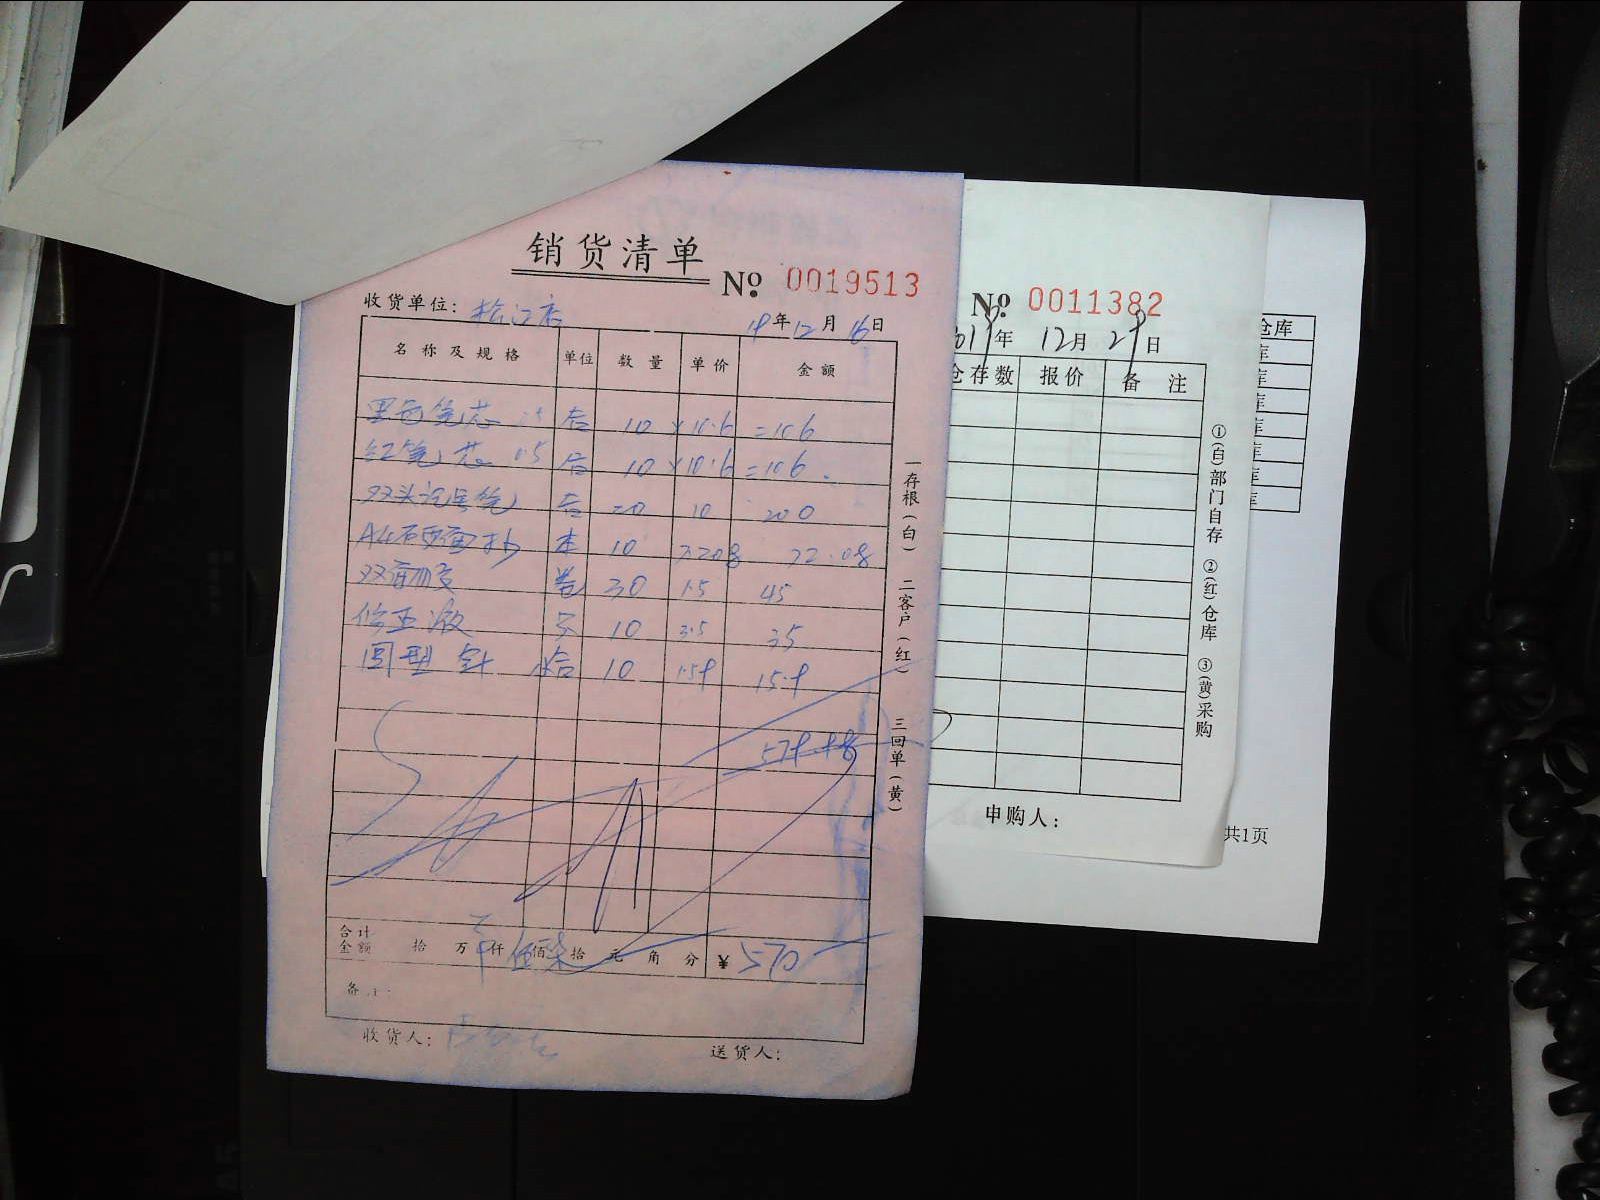 销货清单
No 0019513
收货单位: 松江店
19年12月16日
名称及规格 单位 数量 单价 金额
黑色笔芯 10 ×10.6 =106
红笔芯 0.5 10 ×10.6 =106
双头记号笔 20 10 200
A4硬面抄 本 10 72.08
双面胶 卷 30 1.5 45
修正液 10 3.5 35
回型针 盒 10 1.59 15.9
579.98
合计金额 拾 万 仟 伍佰柒拾 元 角 分 ¥570
备
收货人:
送货人:
一存根(白) 二客户(红) 三回单(黄)
No 0011382
年 12月29日
仓存数 报价 备注
申购人:
①(白)部门自存 ②(红)仓库 ③(黄)采购
仓库
库
库
库
库
库
库
共1页